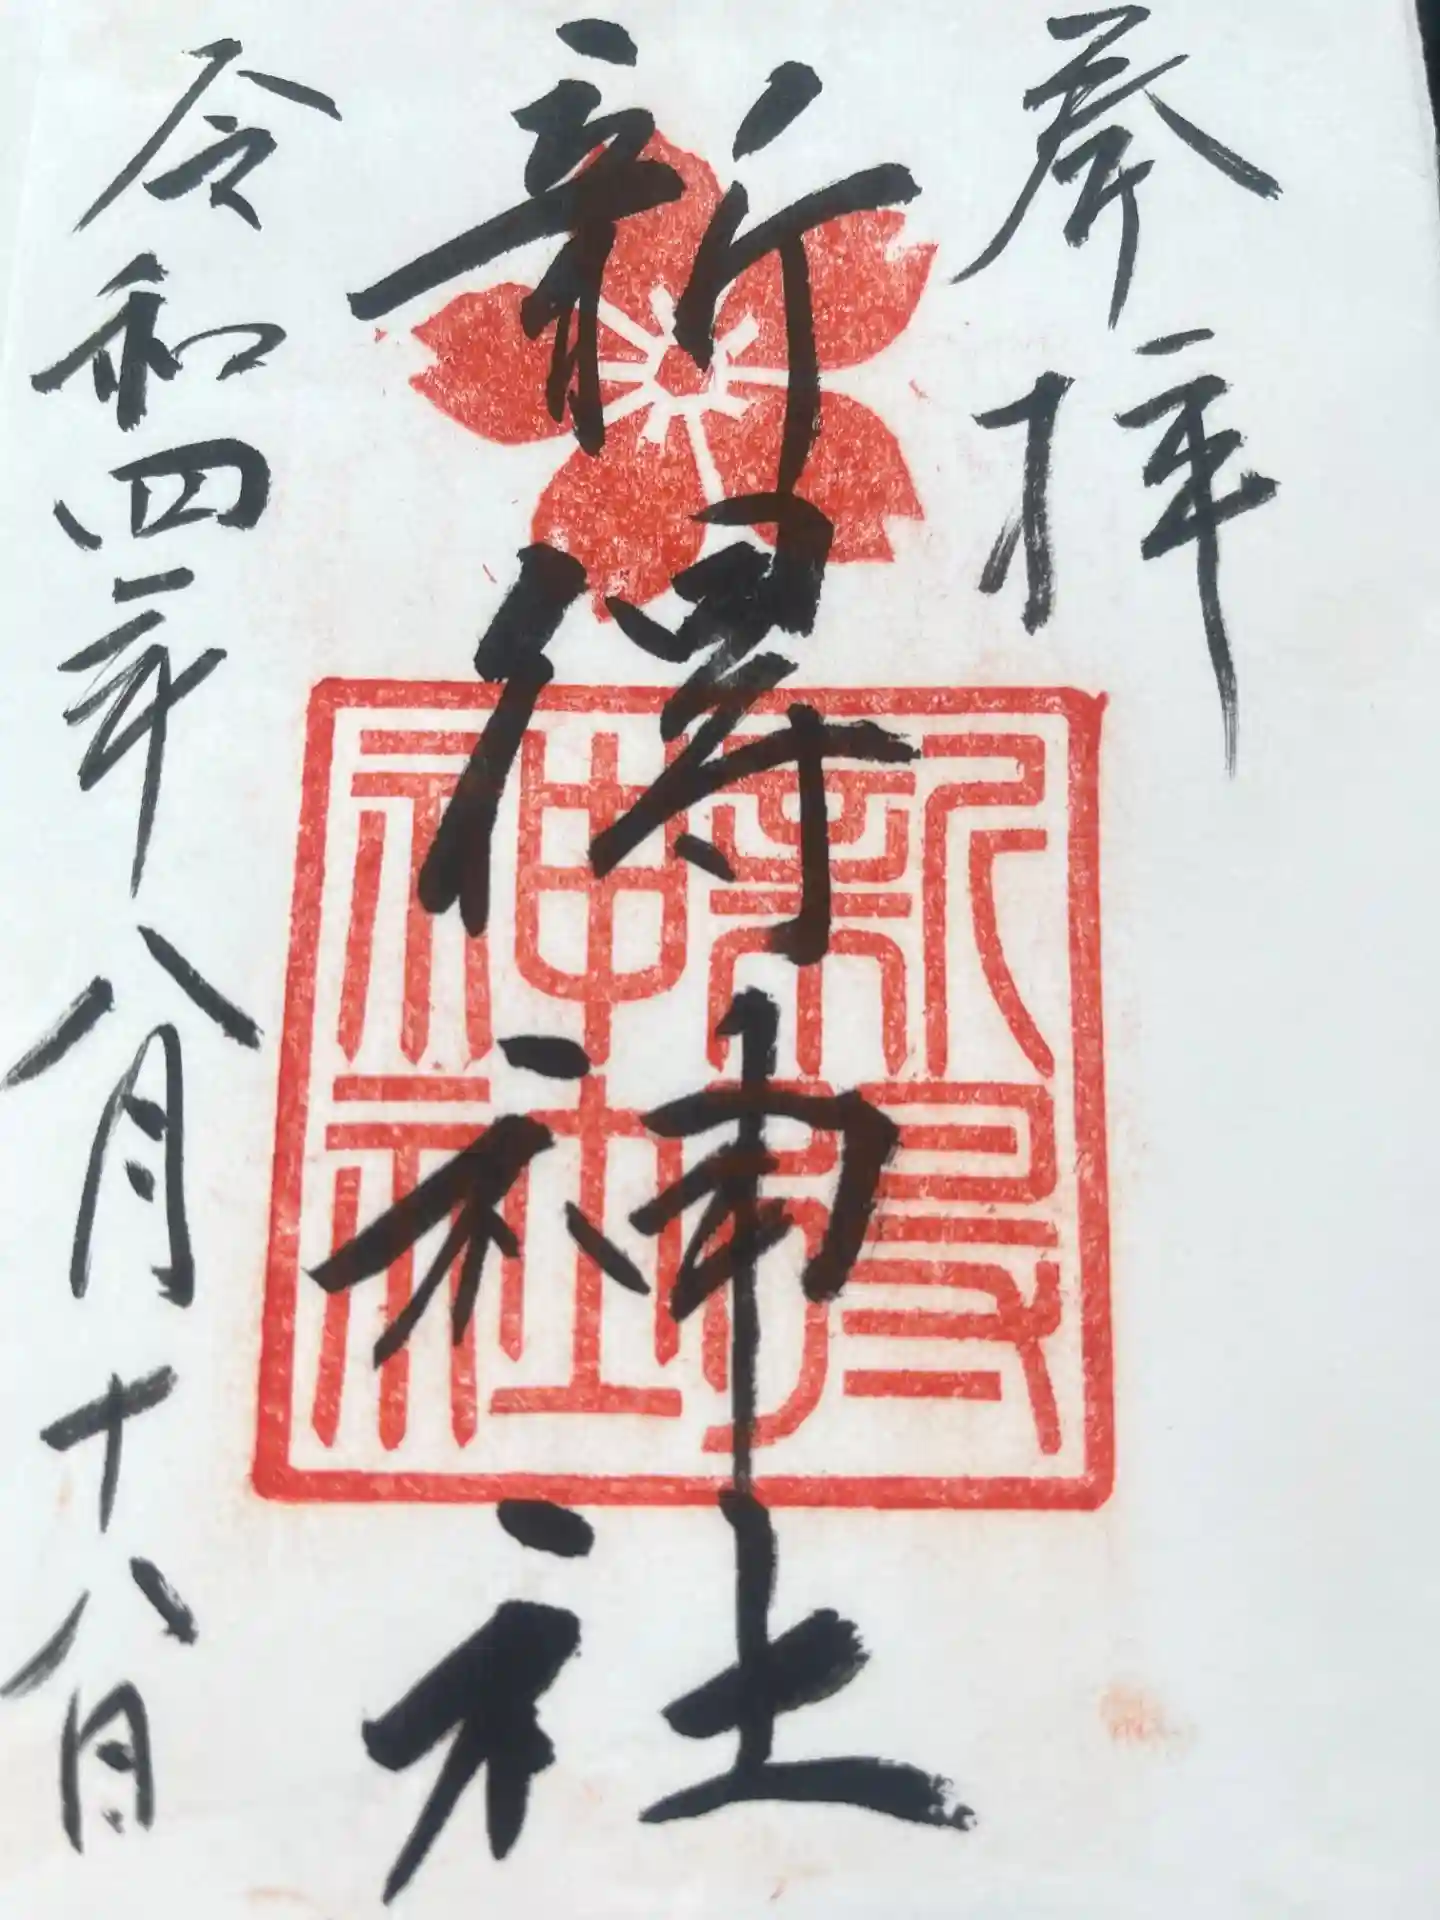 奉拝
新得神社
新得
神社
令和四年八月十八日